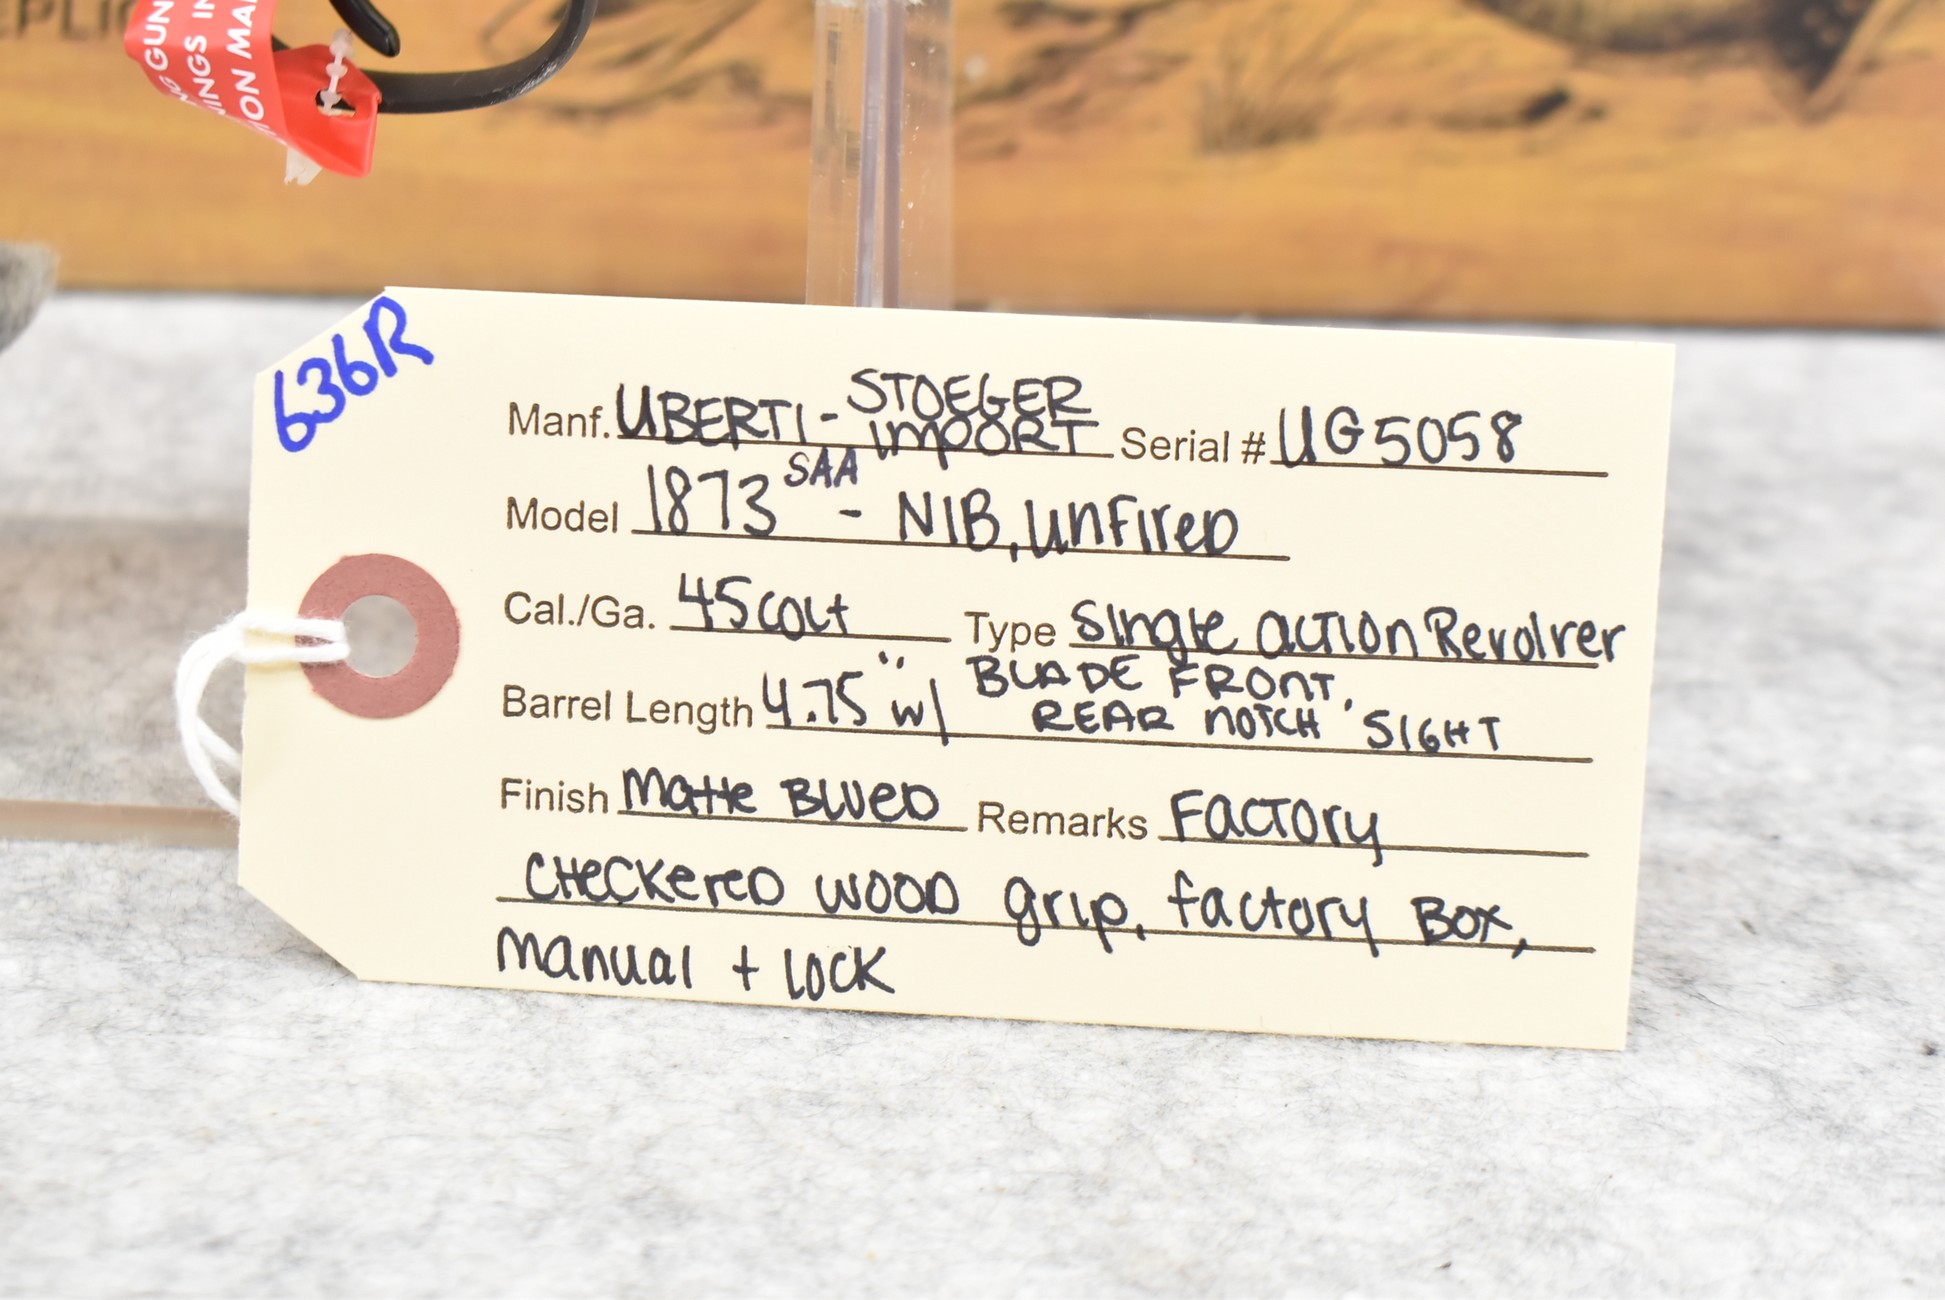 636R
Manf. UBERTI - STOEGER IMPORT Serial # UG5058
Model 1873 SAA - NIB, UNFIRED
Cal./Ga. 45 COLT Type Single Action Revolver
Barrel Length 4.75" w/ BLADE FRONT, REAR NOTCH SIGHT
Finish Matte BLUED Remarks Factory
CHECKERED WOOD grip, factory BOX,
Manual + LOCK